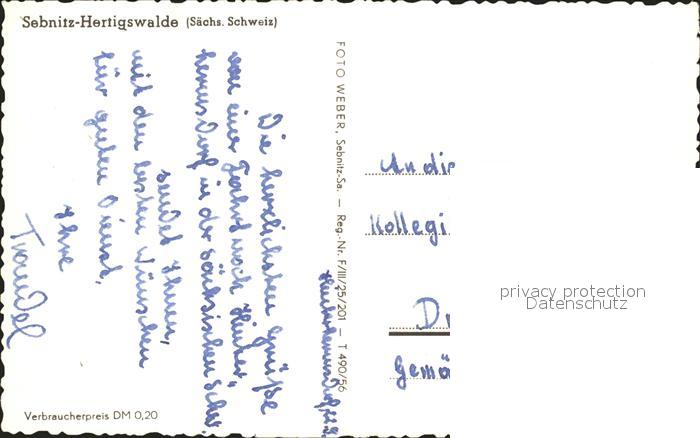 Sebnitz-Hertigswalde (Sächs. Schweiz)
Die herzlichsten Grüße
von einer Fahrt nach Hinter-
hermsdorf in der sächsischen Schw.
sendet Ihnen,
mit den besten Wünschen
für guten Dienst,
Ihre
Traudel
FOTO WEBER, Sebnitz-Sa. — Reg.-Nr. F/III/25/201 — T 490/56
An die
Kollegi
D
Gemä
privacy protection
Datenschutz
Verbraucherpreis DM 0,20